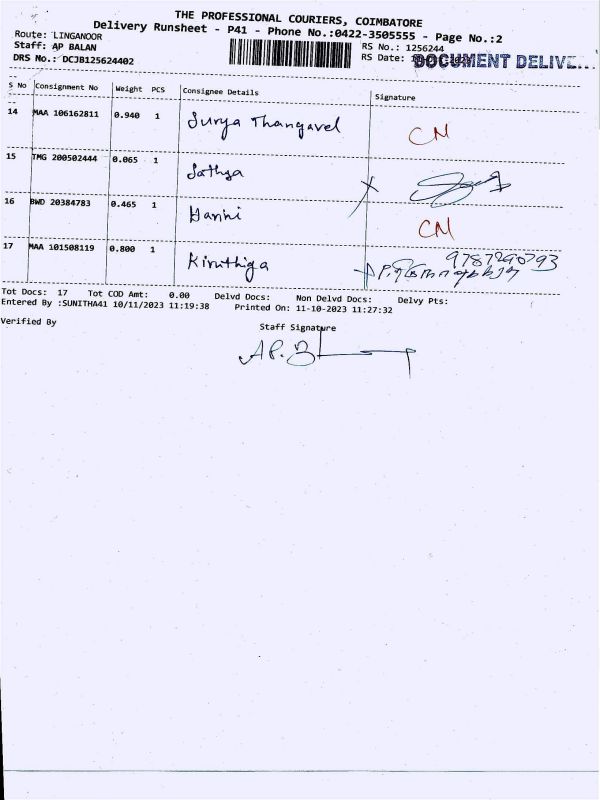 THE PROFESSIONAL COURIERS, COIMBATORE
Delivery Runsheet - P41 - Phone No.:0422-3505555 - Page No.:2
Route: LINGANOOR
RS No.: 1256244
Staff: AP BALAN
RS Date:
DOCUMENT DELIV...
DRS No.: DCJB125624402
S No Consignment No Weight PCS Consignee Details Signature
14 MAA 106162811 0.940 1 Surya Thangavel CN
15 TMG 200502444 0.065 1 Sathya
16 BWD 20384783 0.465 1 Harini CN
17 MAA 101508119 0.800 1 Kiruthiga 9787290793
Tot Docs: 17 Tot COD Amt: 0.00 Delvd Docs: Non Delvd Docs: Delvy Pts:
Entered By :SUNITHA41 10/11/2023 11:19:38 Printed On: 11-10-2023 11:27:32
Verified By
Staff Signature
AP. B